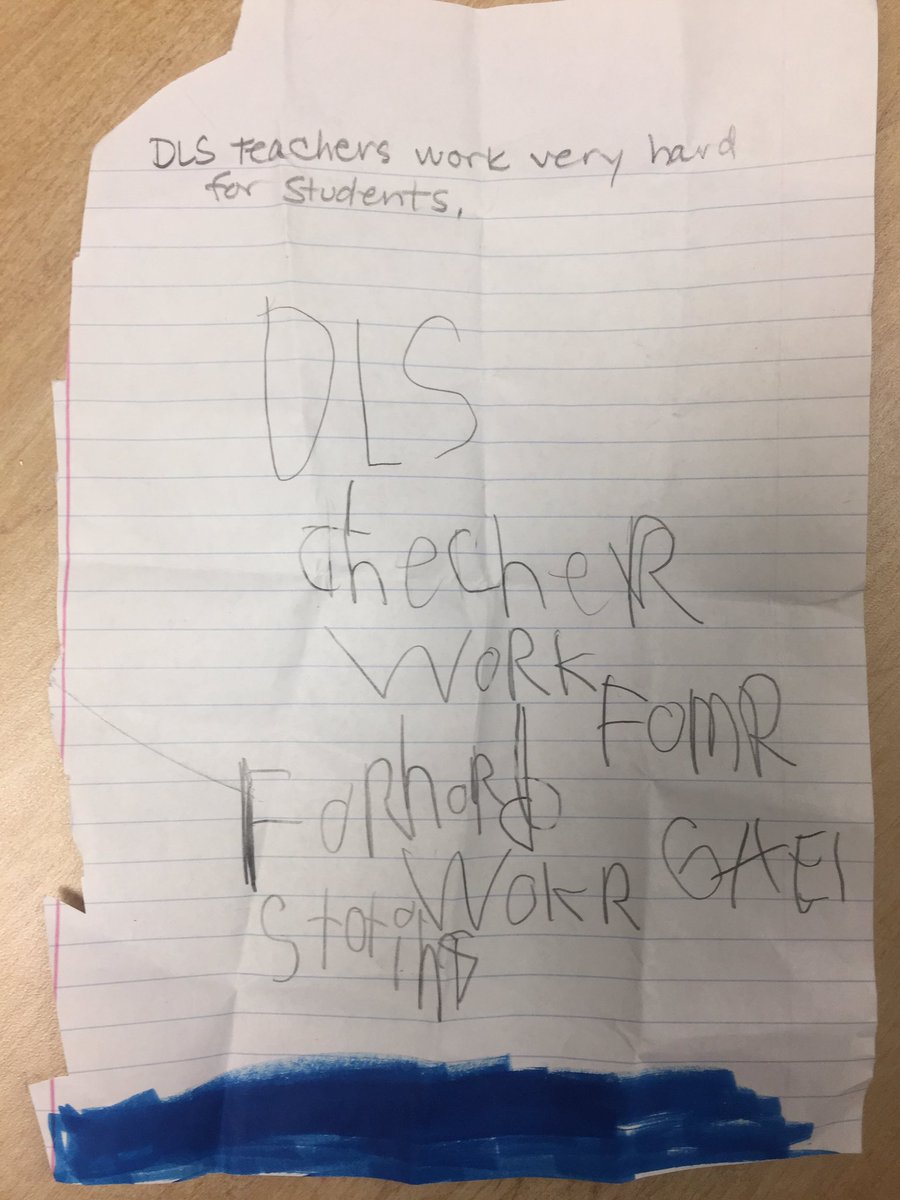 DLS teachers work very hard
for students.
DLS
thecheyR
WoRK
FOMR
Forhord
WOKR GAEl
Stotins